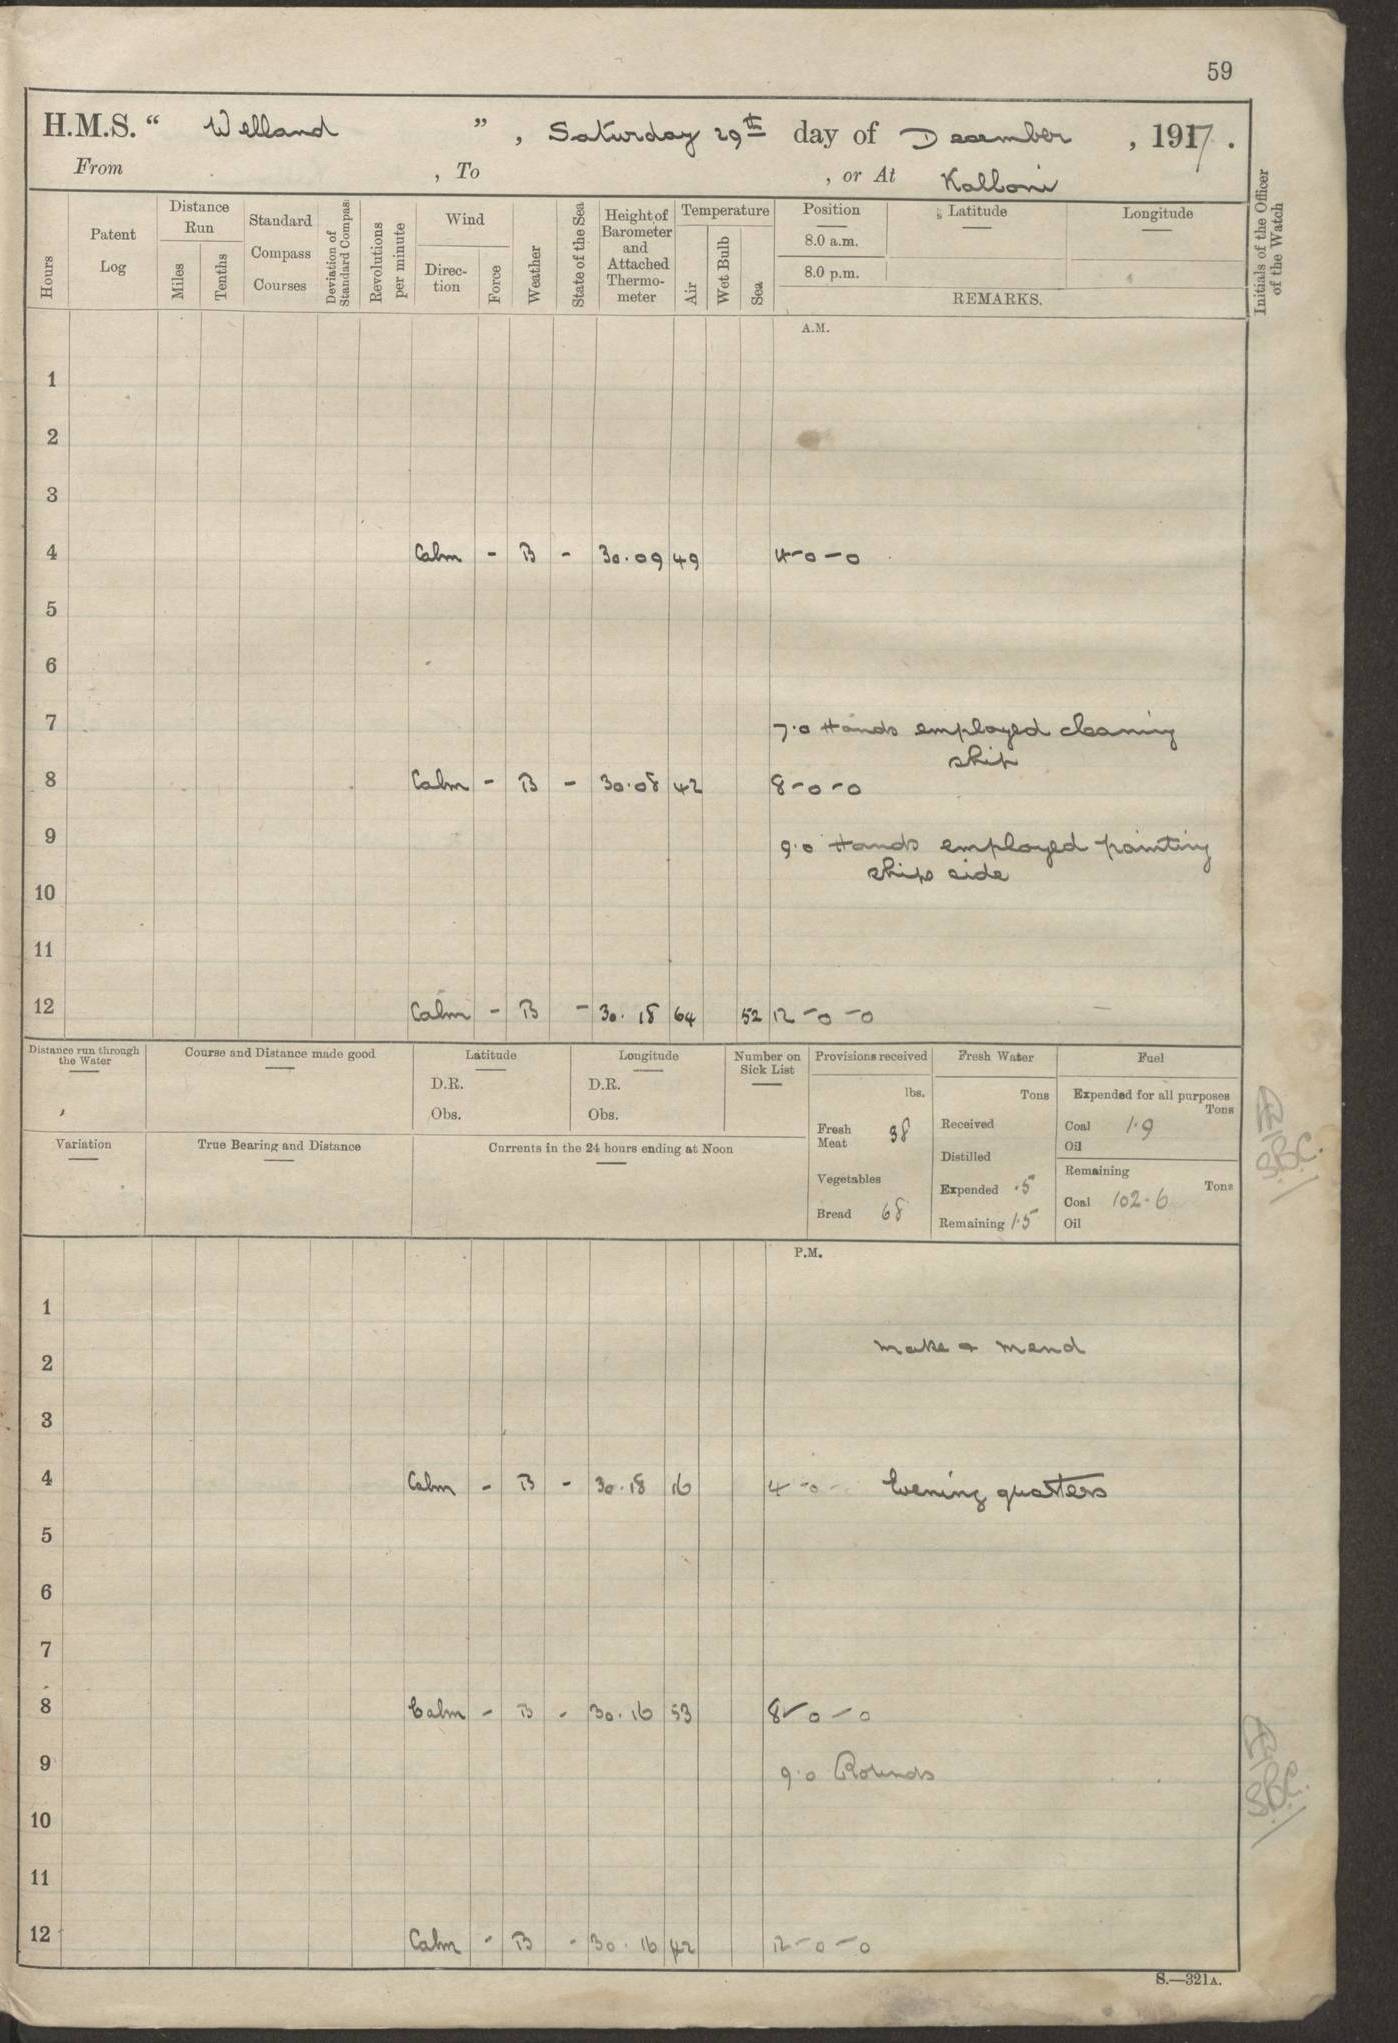 59
H.M.S. “ Welland ” , Saturday 29th day of December , 1917 .
From , To , or At Kalloni
Hours
Patent Log
Distance Run
Miles
Tenths
Standard Compass Courses
Deviation of Standard Compass
Revolutions per minute
Wind
Direction
Force
Weather
State of the Sea
Height of Barometer and Attached Thermometer
Temperature
Air
Wet Bulb
Sea
Position
8.0 a.m.
8.0 p.m.
Latitude
Longitude
REMARKS.
Initials of the Officer of the Watch
A.M.
1
2
3
4 Calm - B - 30.09 49 4-0-0
5
6
7 7.0 Hands employed cleaning
ship
8 Calm - B - 30.08 42 8-0-0
9 9.0 Hands employed painting
ships side
10
11
12 Calm - B - 30.18 64 52 12-0-0
Distance run through the Water
Course and Distance made good
Latitude
D.R.
Obs.
Longitude
D.R.
Obs.
Number on Sick List
Provisions received
lbs.
Fresh Meat 38
Vegetables
Bread 68
Fresh Water
Tons
Received
Distilled
Expended .5
Remaining 1.5
Fuel
Expended for all purposes
Tons
Coal 1.9
Oil
Remaining
Tons
Coal 102.6
Oil
Variation
True Bearing and Distance
Currents in the 24 hours ending at Noon
S.B.C.
P.M.
1
2 make & mend
3
4 Calm - B - 30.18 16 4-0- Evening quarters
5
6
7
8 Calm - B - 30.16 53 8-0-0
9 9.0 Rounds
S.B.C.
10
11
12 Calm - B - 30.16 42 12-0-0
S.—321A.